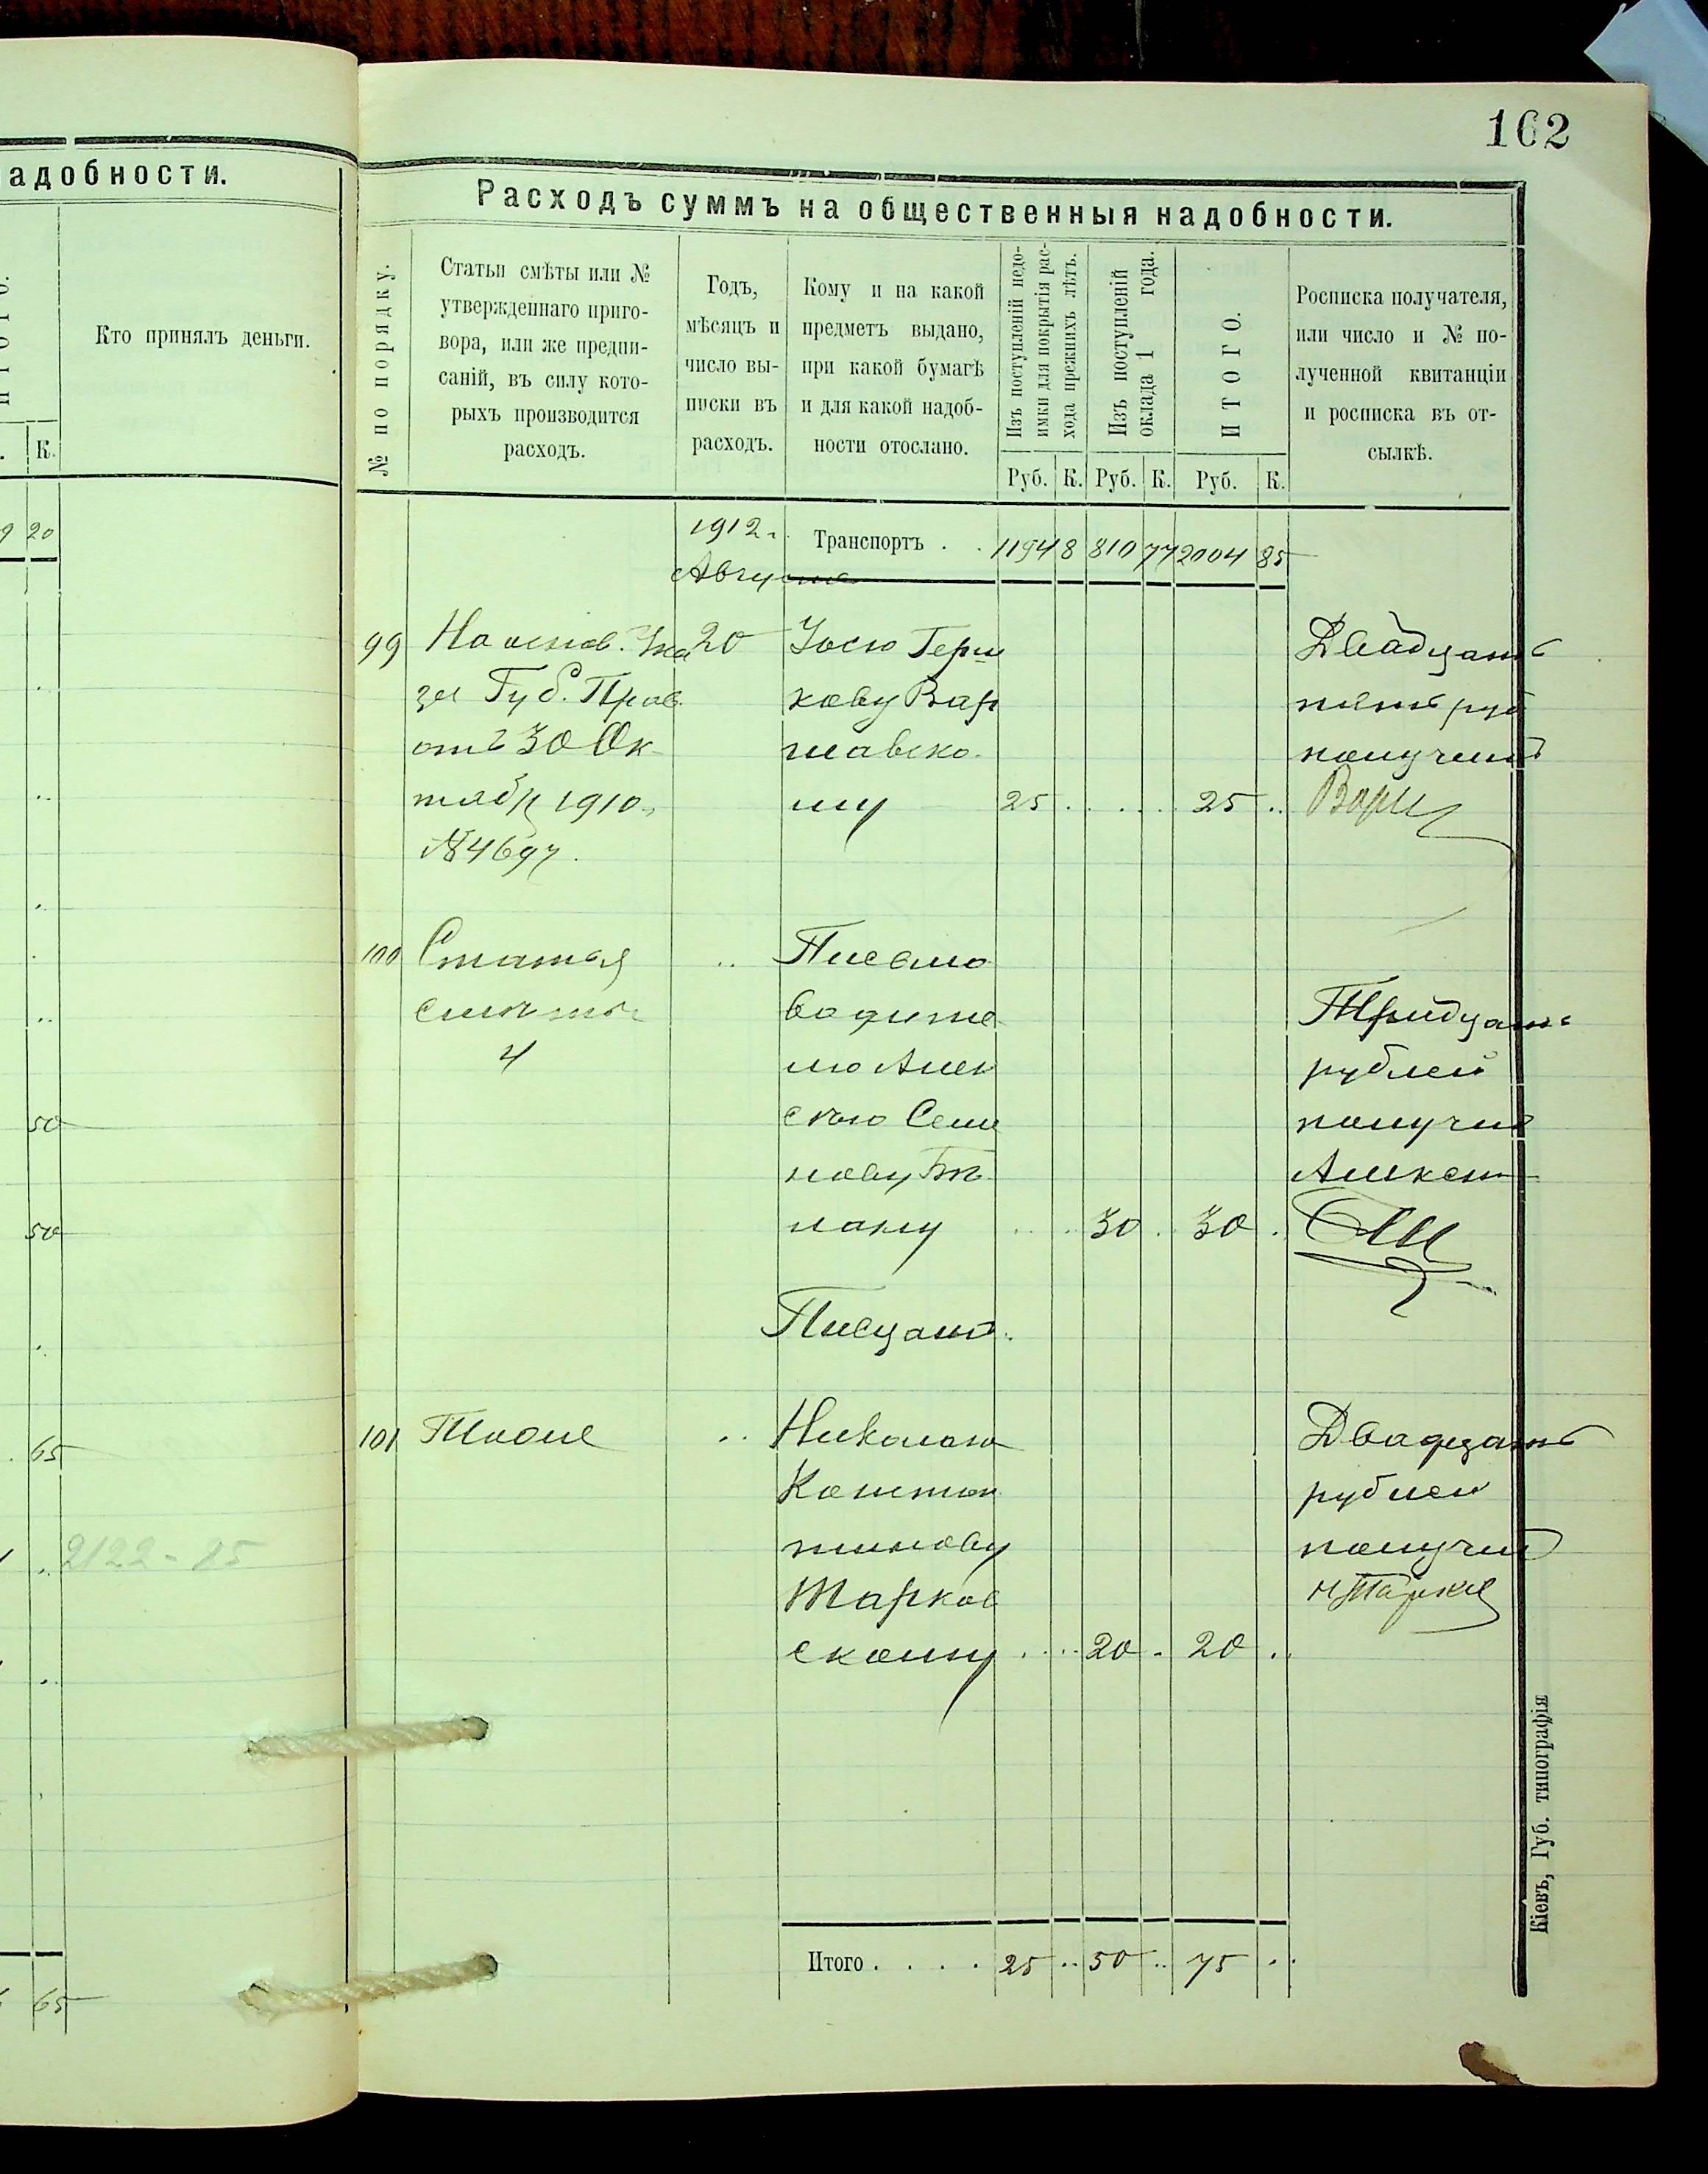 162
адобности.
Кто принялъ деньги.
К.
20
50
50
65
2122-85
65
Расходъ суммъ на общественныя надобности.
№ по порядку.
Статьи смѣты или №
утвержденнаго приго-
вора, или же предпи-
саній, въ силу кото-
рыхъ производится
расходъ.
Годъ,
мѣсяцъ и
число вы-
писки въ
расходъ.
Кому и на какой
предметъ выдано,
при какой бумагѣ
и для какой надоб-
ности отослано.
Изъ поступленій недо-
имки для покрытія рас-
хода прежнихъ лѣтъ.
Изъ поступленій
оклада 1 года.
ИТОГО.
Росписка получателя,
или число и № по-
лученной квитанціи
и росписка въ от-
сылкѣ.
Руб. К. Руб. К. Руб. К.
1912 г.
Августа
Транспортъ . . 1194 8 810 77 2004 85
99
На основ. Ука
за Губ. Прав.
отъ 30 Ок
тябр 1910 г.
№ 4697.
20
Іосю Герш
кову Вар
шавско
му
25 . . . . . 25 ..
Двадцать
пять руб
получилъ
Варш
100
Статья
смѣты
4
..
Письмо
водите
лю Алек
сѣю Семе
нову
30 . 30 .
Тридцать
рублей
получилъ
Писцамъ.
101
Тоже
..
Николаю
Констан
тинову
Тарков
скому
20 . 20 ..
Двадцать
рублей
получилъ
Н Тарков
Итого . . . . 25 .. 50 .. 75 ..
Кіевъ, Губ. типографія